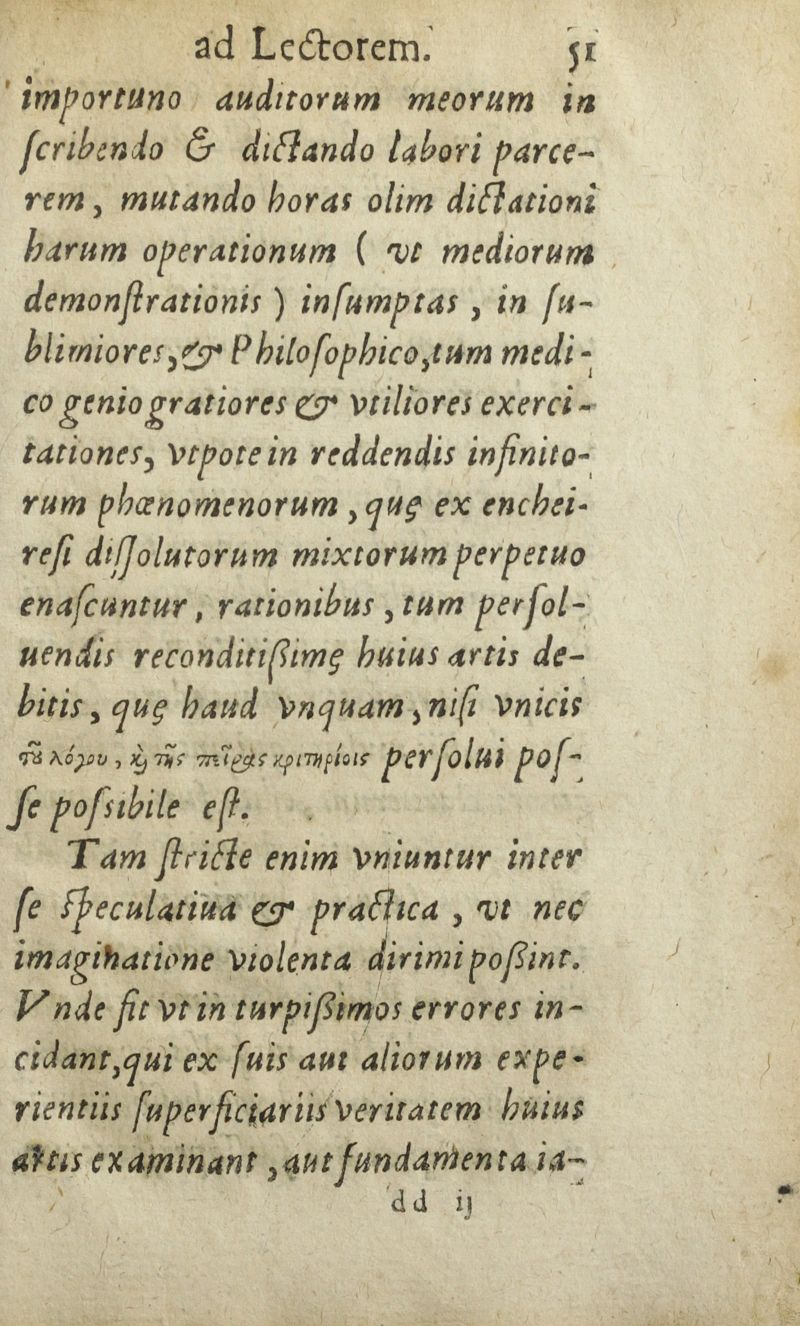 ad Lectorem. 51
importuno auditorum meorum in
ſcribendo & dictando labori parce-
rem, mutando horas olim dictationi
harum operationum ( vt mediorum
demonſtrationis ) inſumptas, in ſu-
blimiores, & Philoſophico, tum medi-
co genio gratiores & vtiliores exerci-
tationes, vtpote in reddendis infinito-
rum phænomenorum, quę ex enchei-
reſi diſſolutorum mixtorum perpetuo
enaſcuntur, rationibus, tum perſol-
uendis reconditiſsimę huius artis de-
bitis, quę haud vnquam, niſi vnicis
τȣ λόγου, ϗ τῆς πείρας κριτηρίοις perſolui poſ-
ſe poſsibile eſt.
Tam ſtricte enim vniuntur inter
ſe ſpeculatiua & practica, vt nec
imaginatione violenta dirimi poſsint.
Vnde fit vt in turpiſsimos errores in-
cidant, qui ex ſuis aut aliorum expe-
rientiis ſuperficiariis veritatem huius
artis examinant, aut fundamenta ia-
dd ij